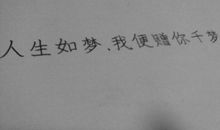 人生如梦,我便赠你千梦